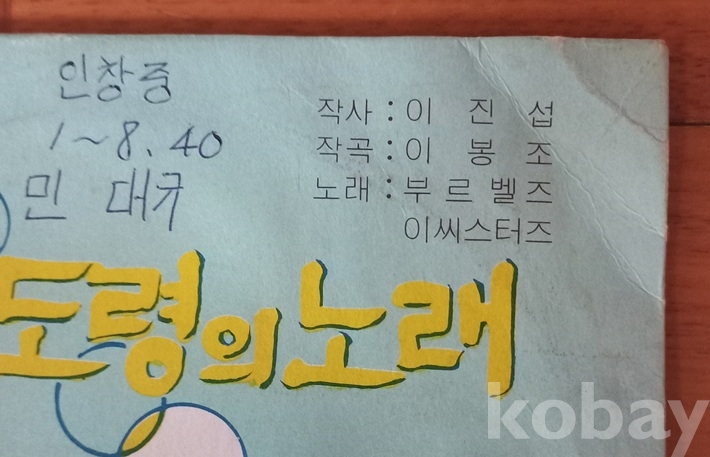 인창중
1~8.40
민 대규
작사 : 이 진 섭
작곡 : 이 봉 조
노래 : 부 르 벨 즈
이씨스터즈
도령의노래
kobay